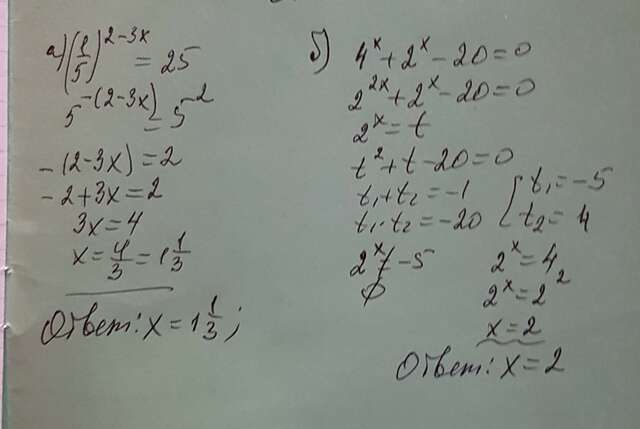 а) (1/5)^(2-3x) = 25
5^(-(2-3x)) = 5^2
-(2-3x) = 2
-2+3x = 2
3x = 4
x = 4/3 = 1 1/3
Ответ: x = 1 1/3;
б) 4^x + 2^x - 20 = 0
2^(2x) + 2^x - 20 = 0
2^x = t
t^2 + t - 20 = 0
t₁ + t₂ = -1
t₁ · t₂ = -20
[ t₁ = -5
t₂ = 4
2^x ≠ -5
∅
2^x = 4
2^x = 2^2
x = 2
Ответ: x = 2